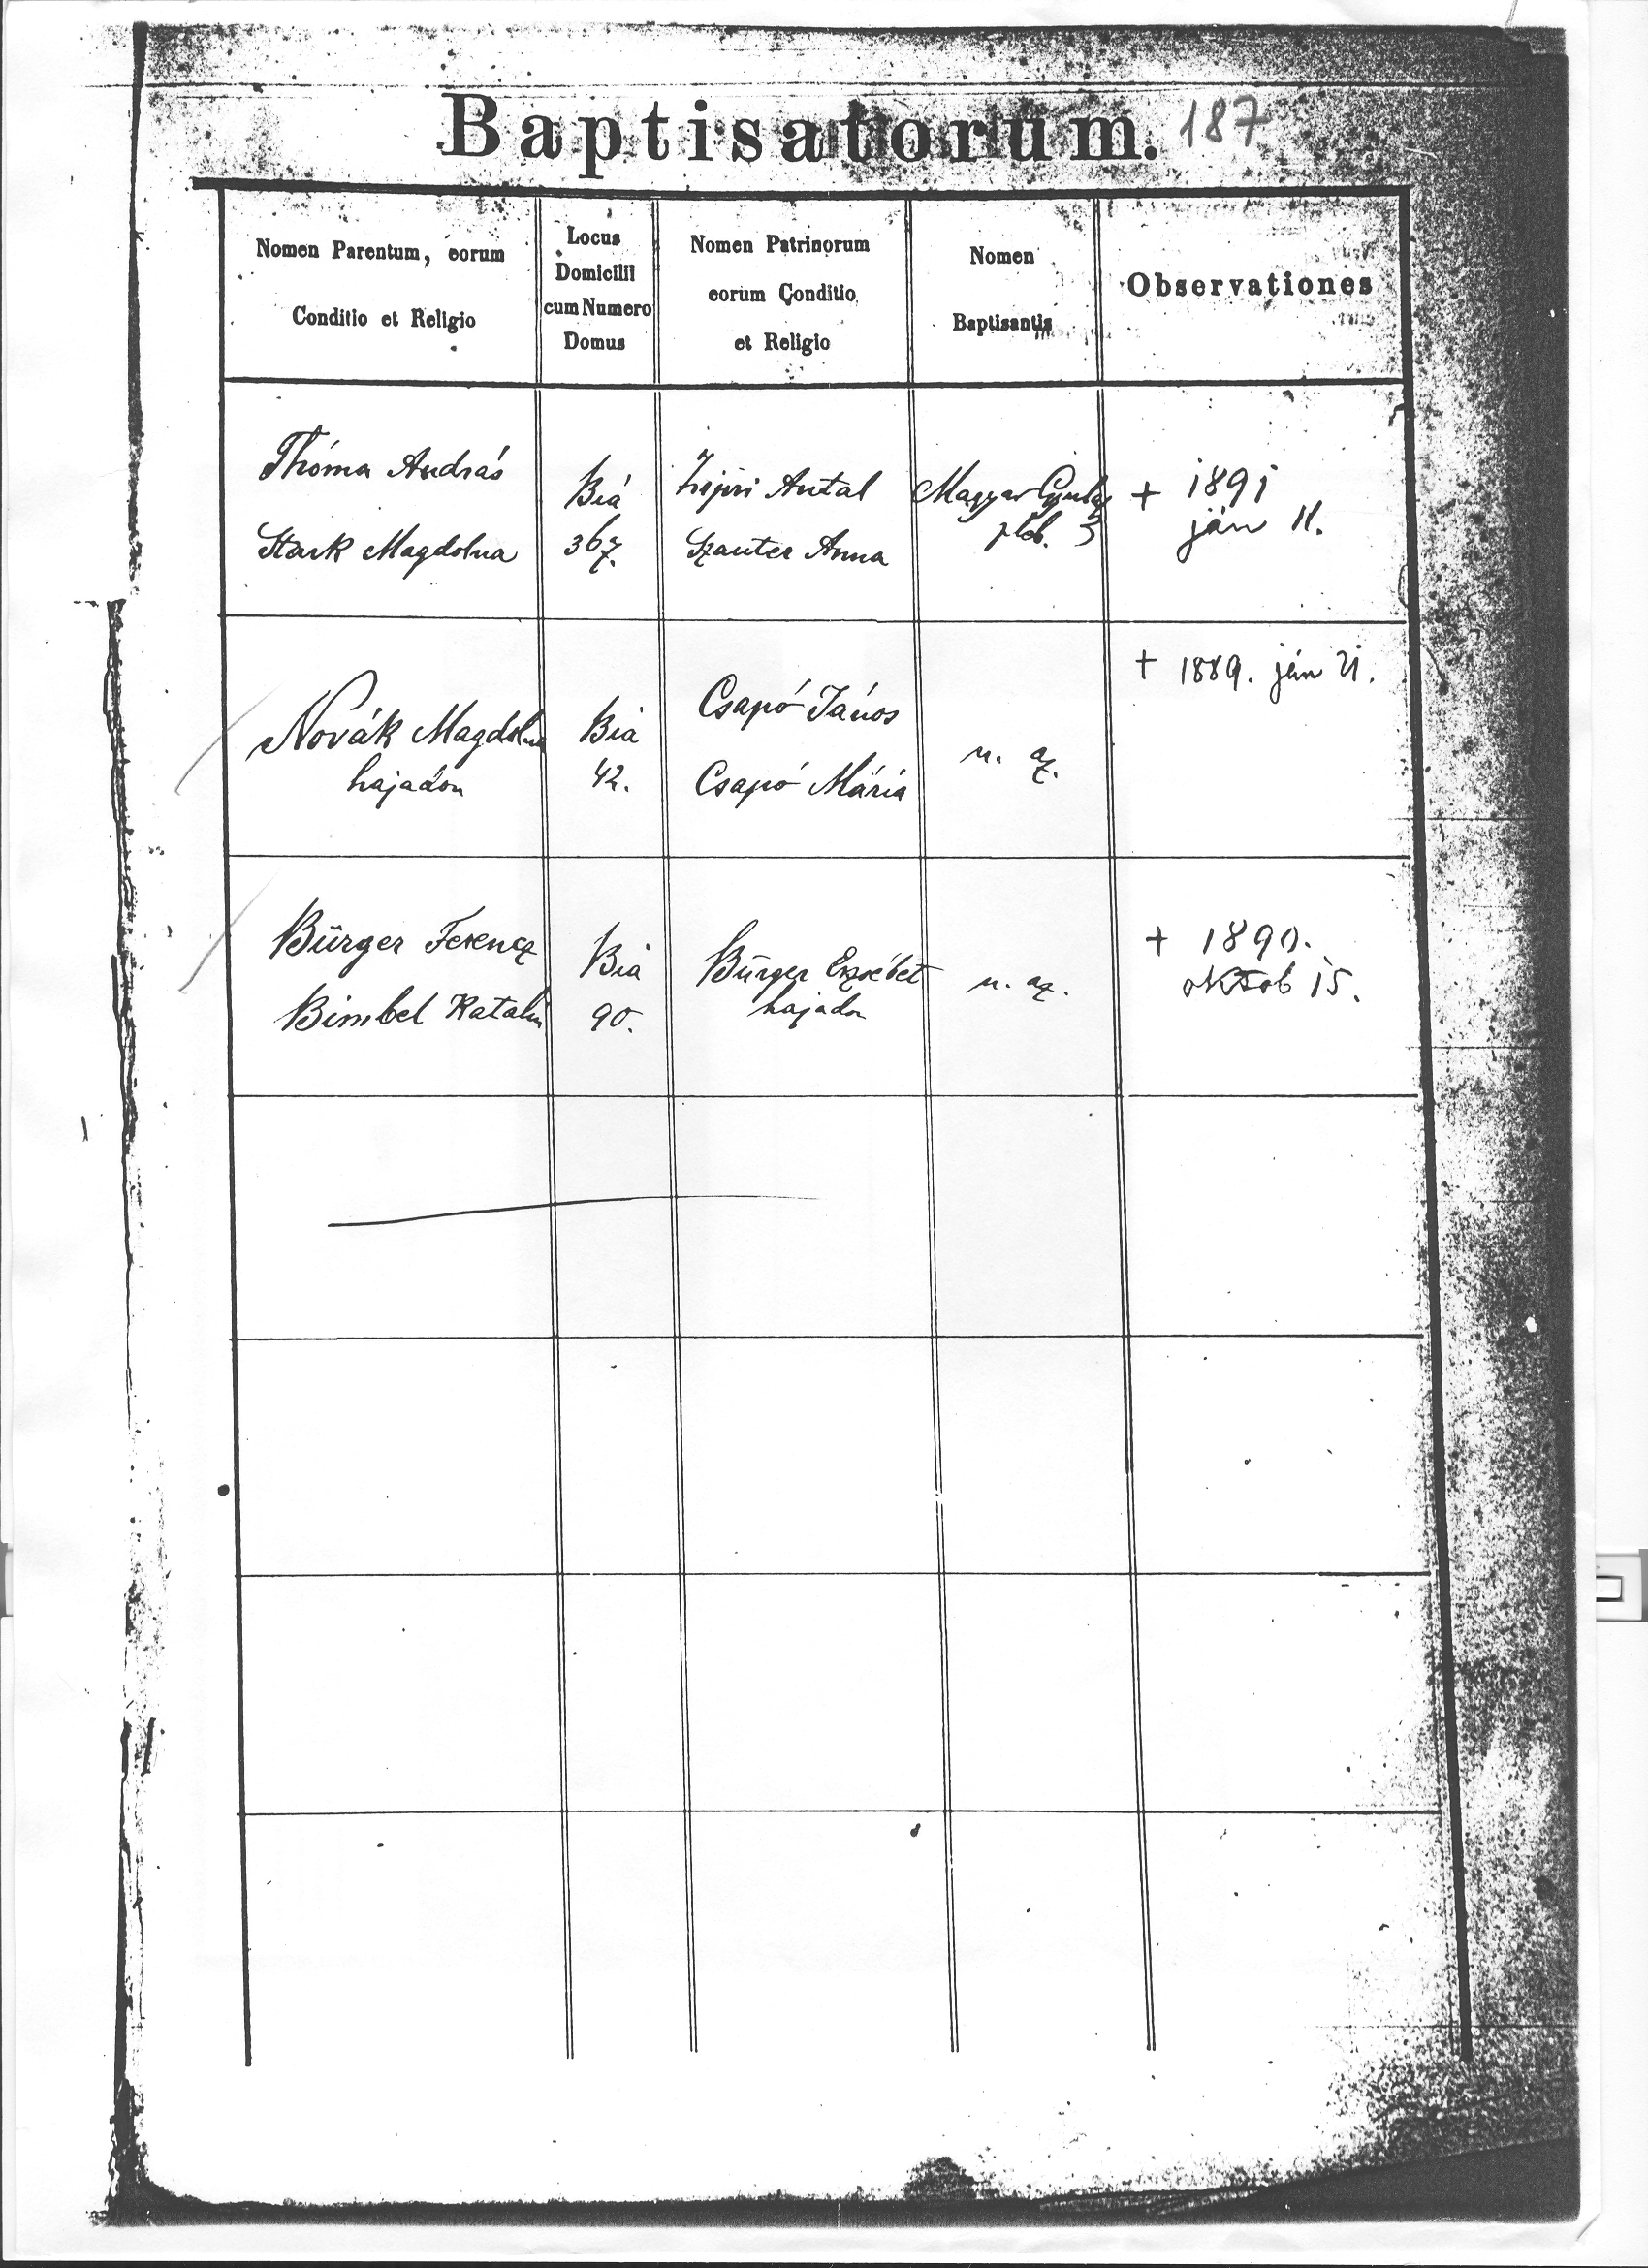 Baptisatorum. 187
Nomen Parentum, eorum
Conditio et Religio
Locus
Domicilii
cum Numero
Domus
Nomen Patrinorum
eorum Conditio
et Religio
Nomen
Baptisantis
Observationes
Thóma András
Stark Magdolna
Biá
367.
Antal
Szauter Anna
Magyar Gyula
pleb.
+ 1891
ján 11.
Novák Magdolna
hajadon
Bia
42.
Csapó János
Csapó Mária
u. az.
+ 1889. ján 21.
Bürger Ferencz
Bimbel Katalin
Bia
90.
Bürger Erzsébet
hajadon
u. az.
+ 1890.
oktob 15.